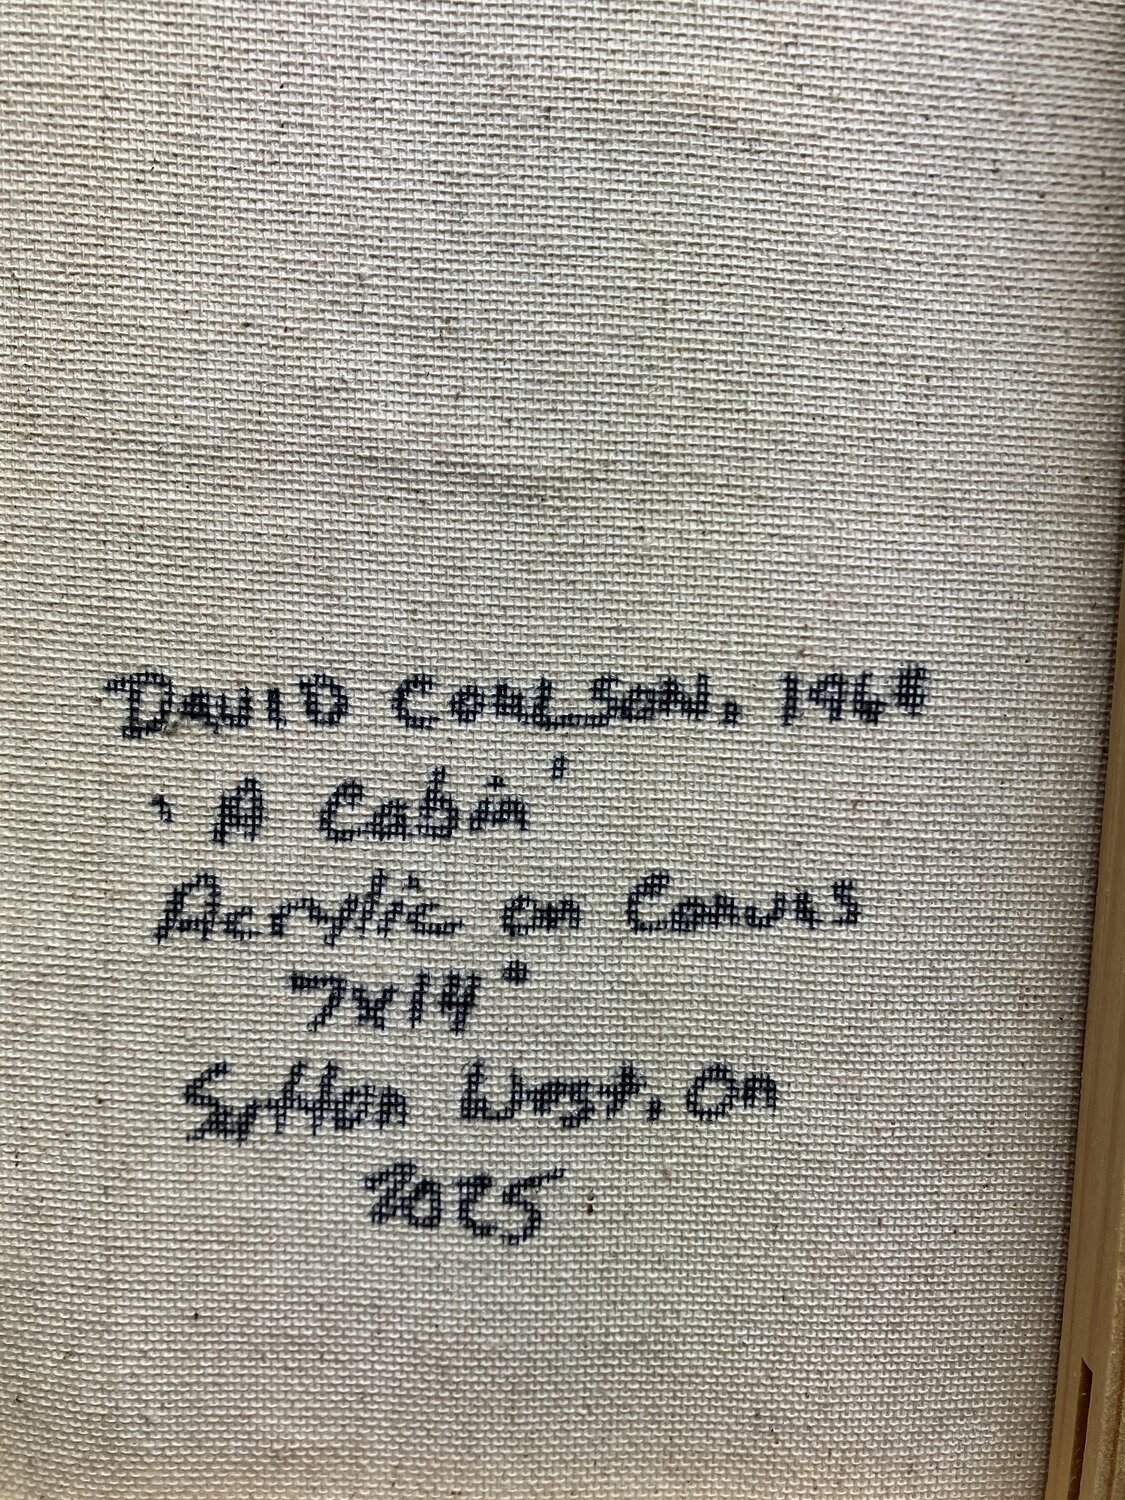 David Coulson, 1968
'A Cabin'
Acrylic on Canvas
7x14"
Sutton West, On
2025